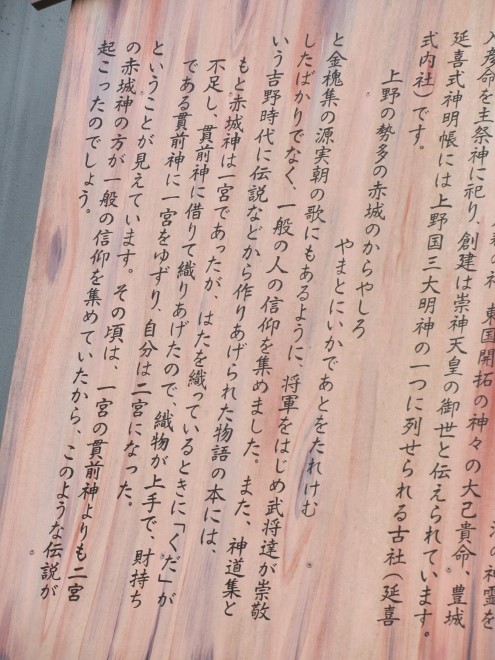 神々の大己貴命、豊城
入彦命を主祭神に祀り、創建は崇神天皇の御世と伝えられています。
延喜式神明帳には上野国三大明神の一つに列せられる古社(延喜
式内社)です。
上野の勢多の赤城のからやしろ
やまとにいかであとをたれけむ
と金槐集の源実朝の歌にもあるように、将軍をはじめ武将達が崇敬
したばかりでなく、一般の人の信仰を集めました。また、神道集と
いう吉野時代に伝説などから作りあげられた物語の本には、
もと赤城神は一宮であったが、はたを織っているときに「くだ」が
不足し、貫前神に借りて織りあげたので、織物が上手で、財持ち
である貫前神に一宮をゆずり、自分は二宮になった。
ということが見えています。その頃は、一宮の貫前神よりも二宮
の赤城神の方が一般の信仰を集めていたから、このような伝説が
起こったのでしょう。